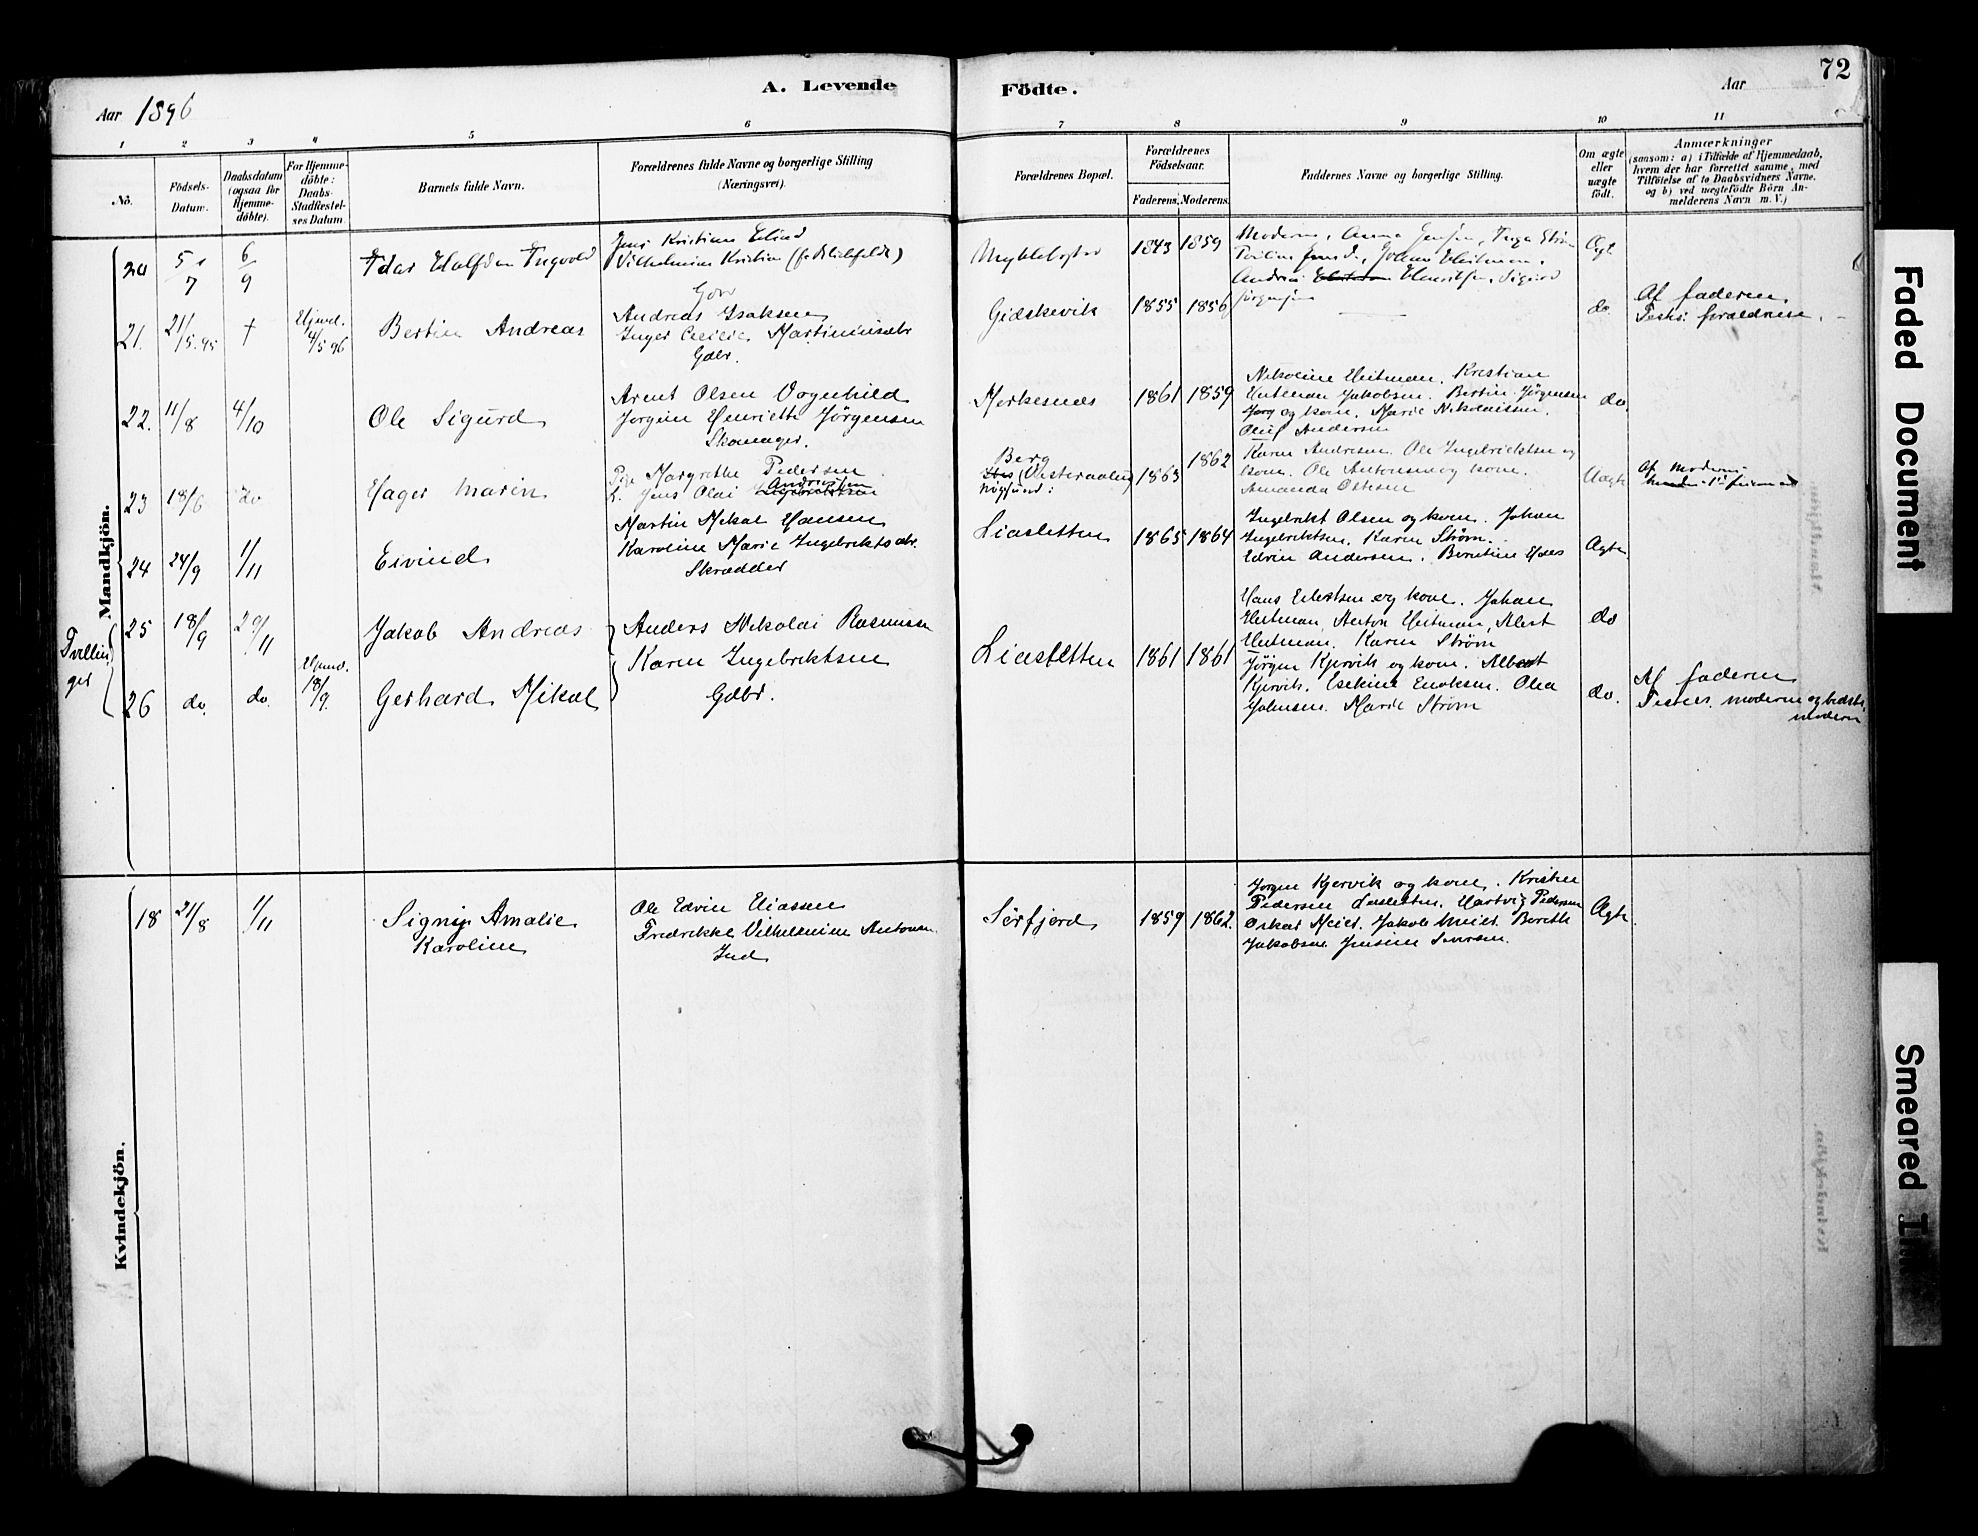 72
A. Levende
Födte.
Aar 1896
Aar
1 2 3 4 5 6 7 8 9 10 11
No.
Födsels-
Datum.
Daabsdatum
(ogsaa for
Hjemme-
döbte).
For Hjemme-
döbte:
Daabs-
Stadfestel-
ses Datum.
Barnets fulde Navn.
Forældrenes fulde Navne og borgerlige Stilling
(Næringsvei).
Forældrenes Bopæl.
Forældrenes
Födselsaar.
Faderens. Moderens.
Faddernes Navne og borgerlige Stilling.
Om ægte
eller
uægte
födt.
Anmærkninger
(saasom: a) i Tilfælde af Hjemmedaab,
hvem der har forrettet samme, med
Tilföielse af to Daabsvidners Navne,
og b) ved uægtefödte Börn An-
melderens Navn m. V.)
Mandkjön.
20 5/7 6/9
Idar Halfdan Ingvold
Jens Kristian
Vilhelmine Kristine
Myklebostad 1843 1859
Moderen, Anna Jensen, Inga Strøm
Ægt
21. 21/5.95 † Hjemd. 4/5 96
Bertin Andreas
Andreas Isaksen
Inger Cecilie Martinusdtr
Gdbr.
Gidskevik 1855 1856
do
Af faderen.
Test: forældrene.
22. 11/8 4/10
Ole Sigurd
Arent Olsen Vognhild
Jørgine Henriette Jørgensen
Skomager.
Merkesnes 1861 1859
Nikoline Heitman. Kristian
Heitman Jakobsen. Bertin Jørgensen
og kone. Marie Nikolaisen.
Oluf Andersen
do.
23 18/6 do
Hager Marin
Pige Margrethe Pedersen
Jens Olai Andreassen Ingebriktsen
Berg
(Vesteraalen) 1863 1862
Karen Andresen. Ole Ingebriktsen og
kone. Ole Antonsen og kone.
Amanda
Uægte
Af moderen
24 24/9 1/11
Eivind
Martin Mikal Hansen
Karoline Marie Ingebriktsdtr.
Skrædder
Liasletten 1865 1864
Ingebrikt Olsen og kone. Johan
Ingebriktsen. Karen Strøm.
Edvin Andersen. Berntine Hans
Ægte.
Tvillin
ger
25 18/9 29/11
Jakob Andreas
Anders Nikolai Rasmussen
Karen Ingebriktsen
Gdbr.
Liasletten 1861 1861
Hans Eilertsen og kone. Johan
Heitman, Anton Heitman, Albert
Heitman. Karen Strøm
do
26 do. do. Hjemd. 18/9.
Gerhard Mikal
Jörgen Kjervik og kone. Albert
Kjervik. Esekine Enoksen. Olea
Johnsen. Marie Strøm
do.
Af faderen
Testes. moderen og bedste
moderen
Kvindekjön.
18 21/8 1/11
Signy Amalie
Karoline
Ole Edvin Eliassen
Fredrikke Vilhelmine Antonsen
Ind
Sørfjord 1859 1862.
Jørgen Kjervik og kone. Kristen
Pedersen Liasletten. Hartvig Pedersen
Oskar Meier. Jakob Meier. Bereth
Jakobsen Jensine
Ægte
Faded Document
Smeared